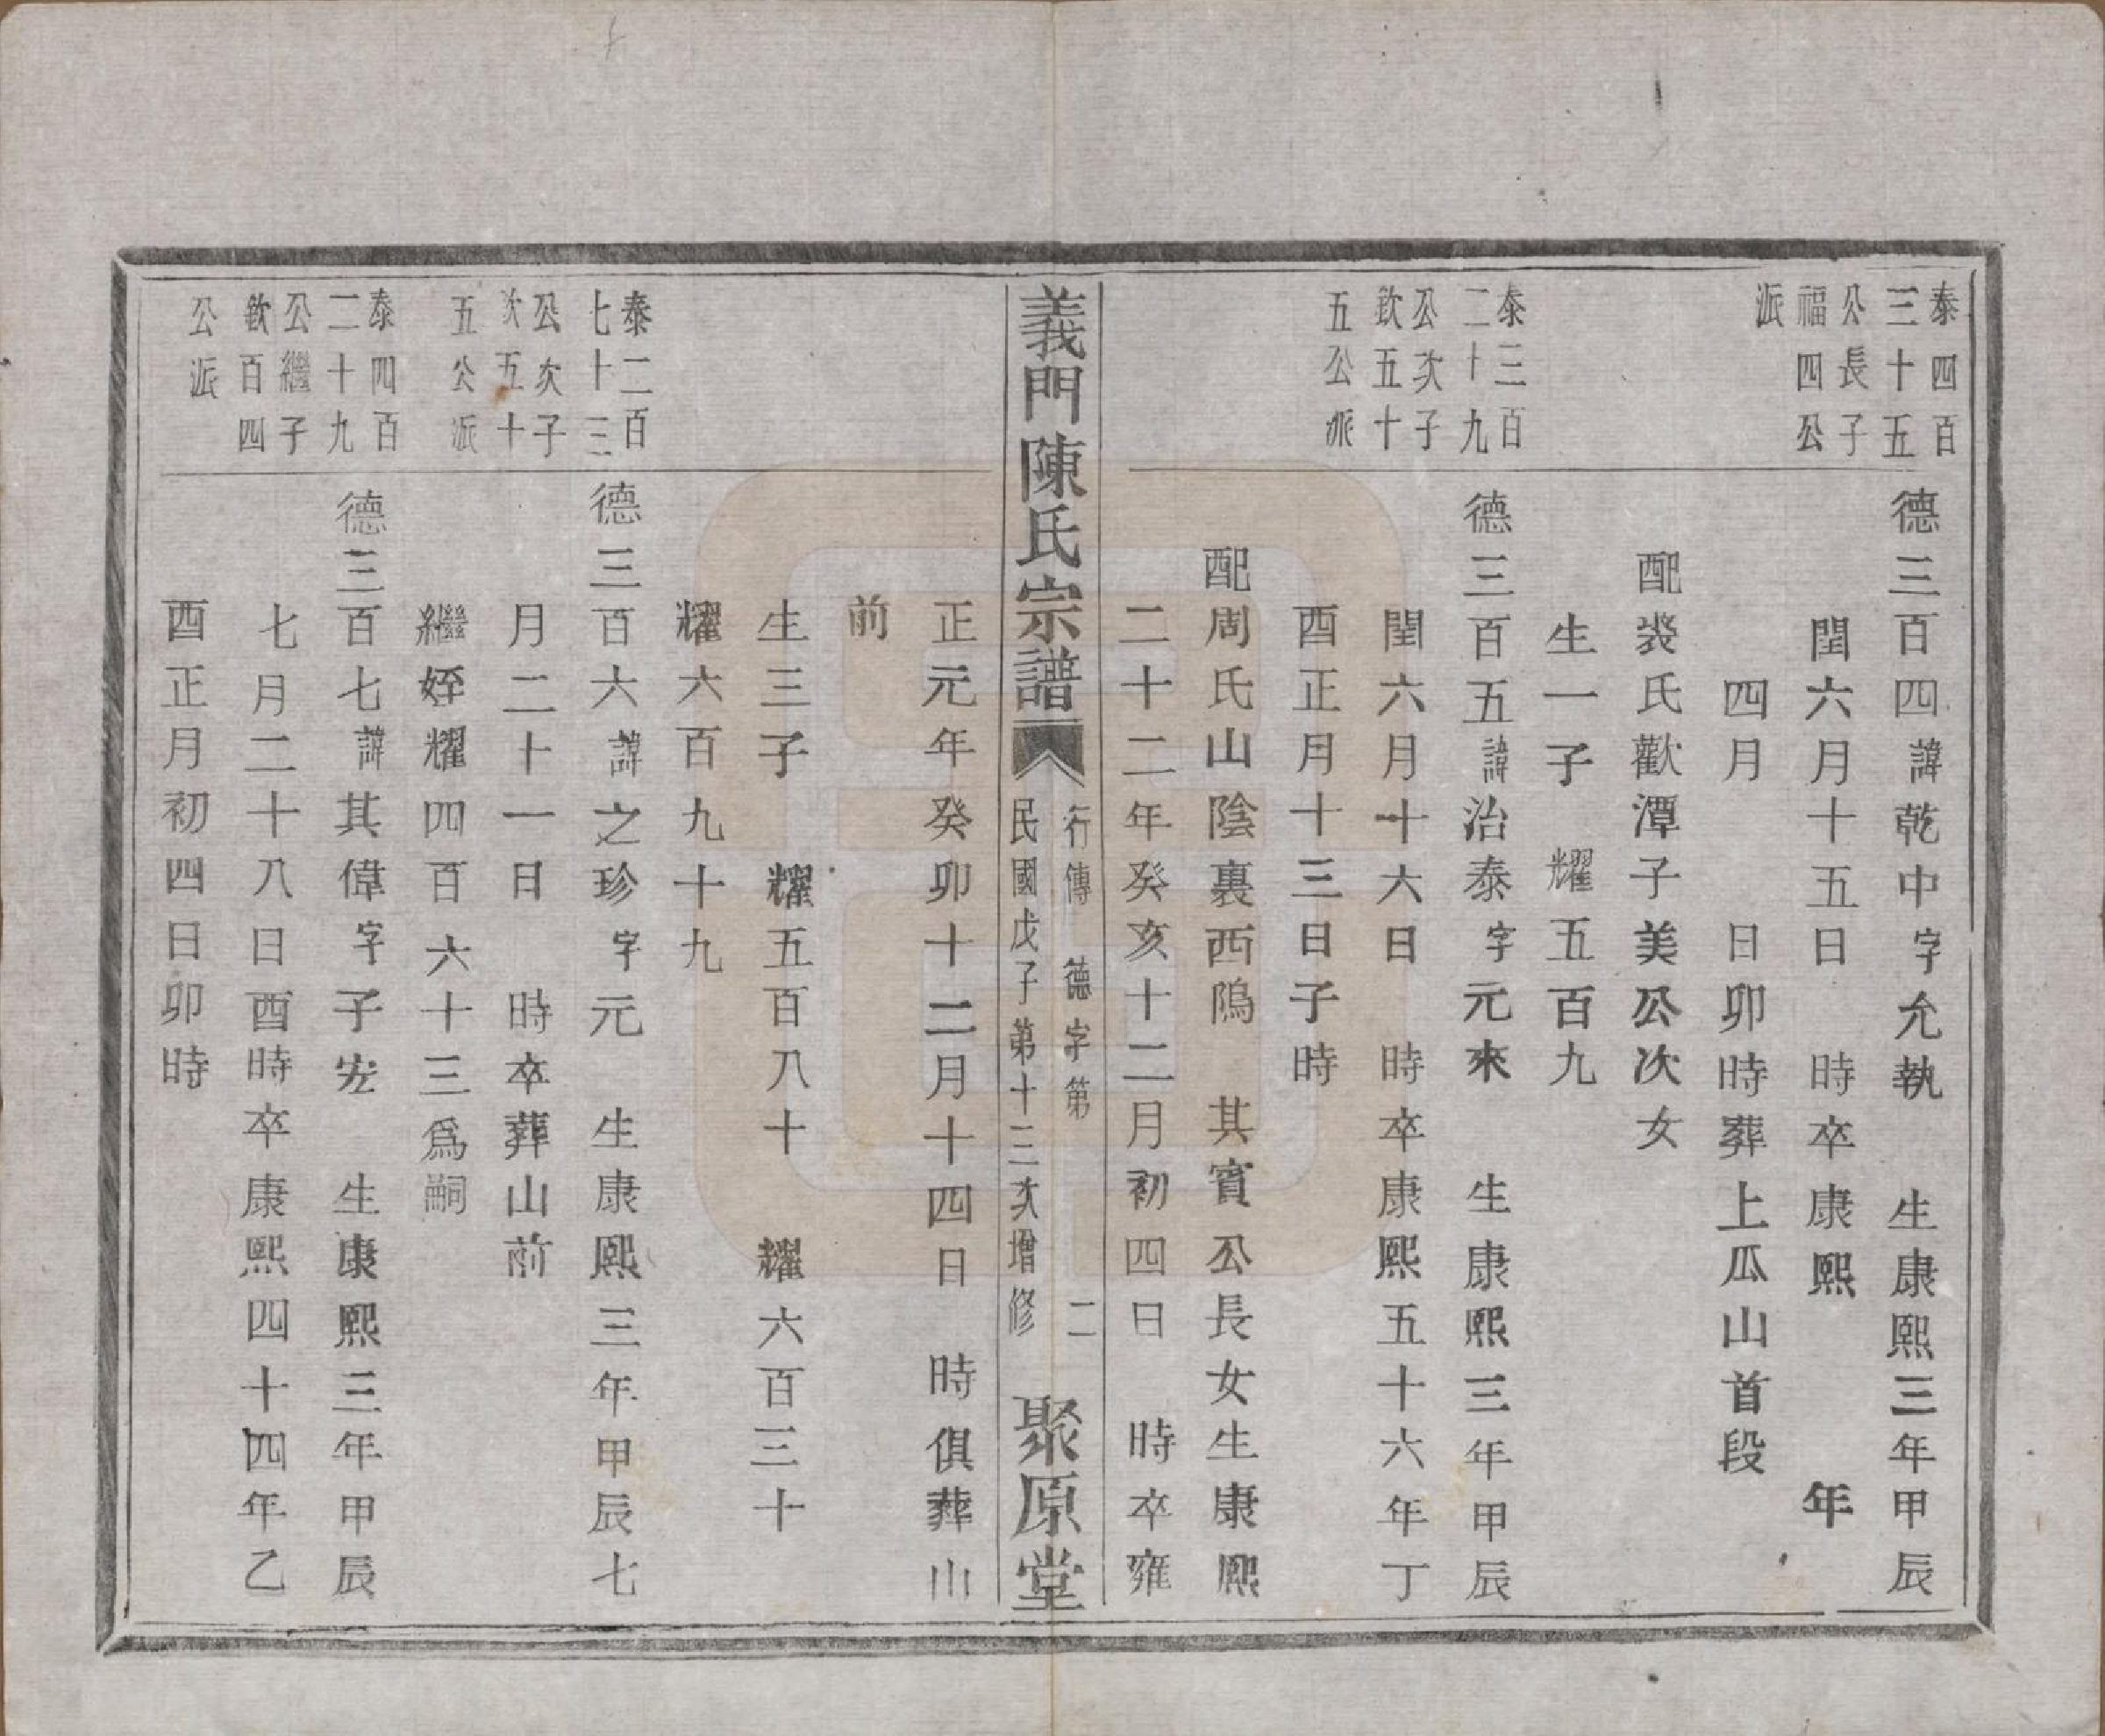 泰四百
三十五
公長子
福四公
派
德三百四諱乾中字允執　生康熙三年甲辰
閏六月十五日　時卒康熙　　年
四月　　日卯時葬上瓜山首段
配裘氏歡潭子美公次女
生一子　耀五百九
泰三百
二十九
公次子
欽五十
五公派
德三百五諱治泰字元來　生康熙三年甲辰
閏六月十六日　時卒康熙五十六年丁
酉正月十三日子時
配周氏山陰裏西隝　其賓公長女生康熙
二十二年癸亥十二月初四日　時卒雍
義門陳氏宗譜
行傳　德字第　　二
民國戊子第十三次增修
聚原堂
正元年癸卯十二月十四日　時俱葬山
前
生三子　耀五百八十　耀六百三十
耀六百九十九
泰二百
七十三
公次子
次五十
五公派
德三百六諱之珍字元　生康熙三年甲辰七
月二十一日　時卒葬山前
繼姪耀四百六十三爲嗣
泰四百
二十九
公繼子
欽百四
公派
德三百七諱其偉字子宏　生康熙三年甲辰
七月二十八日酉時卒康熙四十四年乙
酉正月初四日卯時